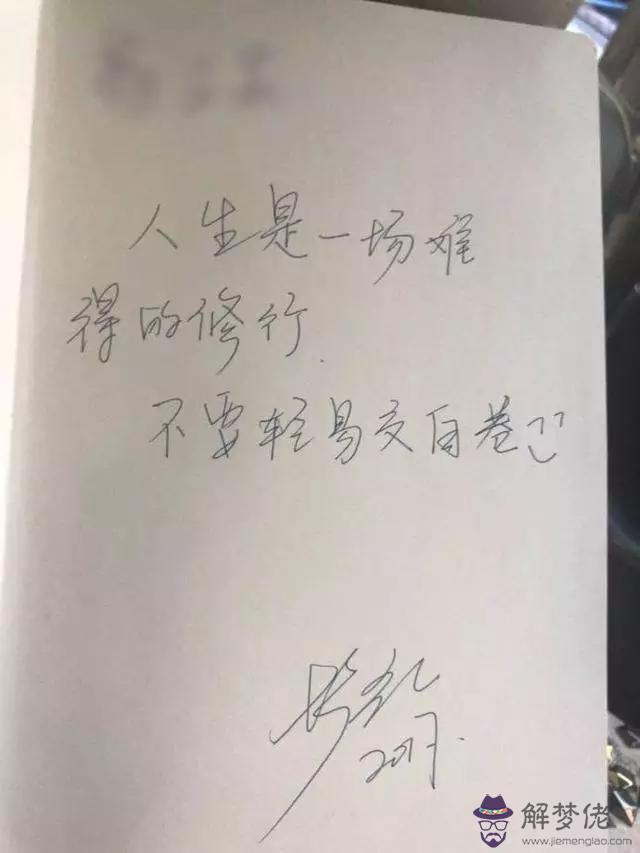 人生是一场难
得的修行.
不要轻易交白卷
2017.
解梦佬
www.jiemenglao.com